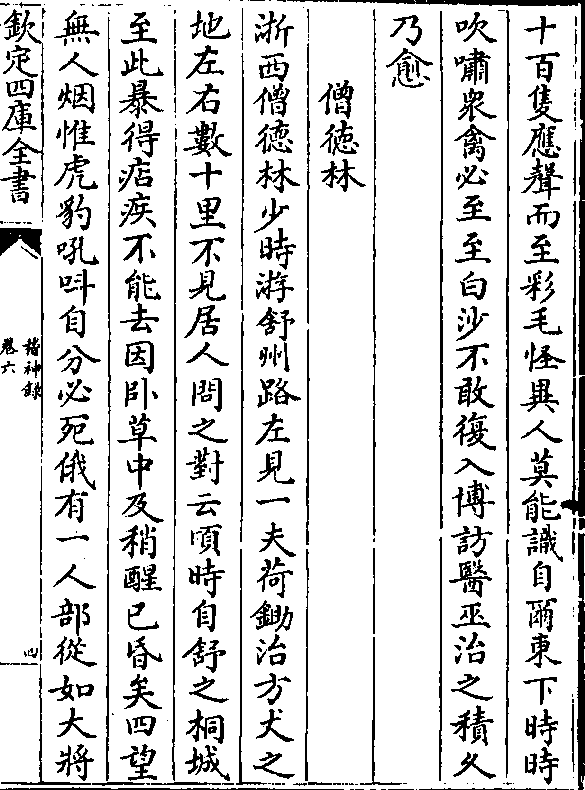 十百隻應聲而至彩毛怪異人莫能識自爾東下時時
吹嘯衆禽必至至白沙不敢復入博訪醫巫治之積久
乃愈
僧徳林
浙西僧徳林少時游舒州路左見一夫荷鋤治方丈之
地左右數十里不見居人問之對云頃時自舒之桐城
至此暴得痁疾不能去因卧草中及稍醒已昏矣四望
無人烟惟虎豹吼呌自分必死俄有一人部從如大將
欽定四庫全書
稽神錄
卷六
四